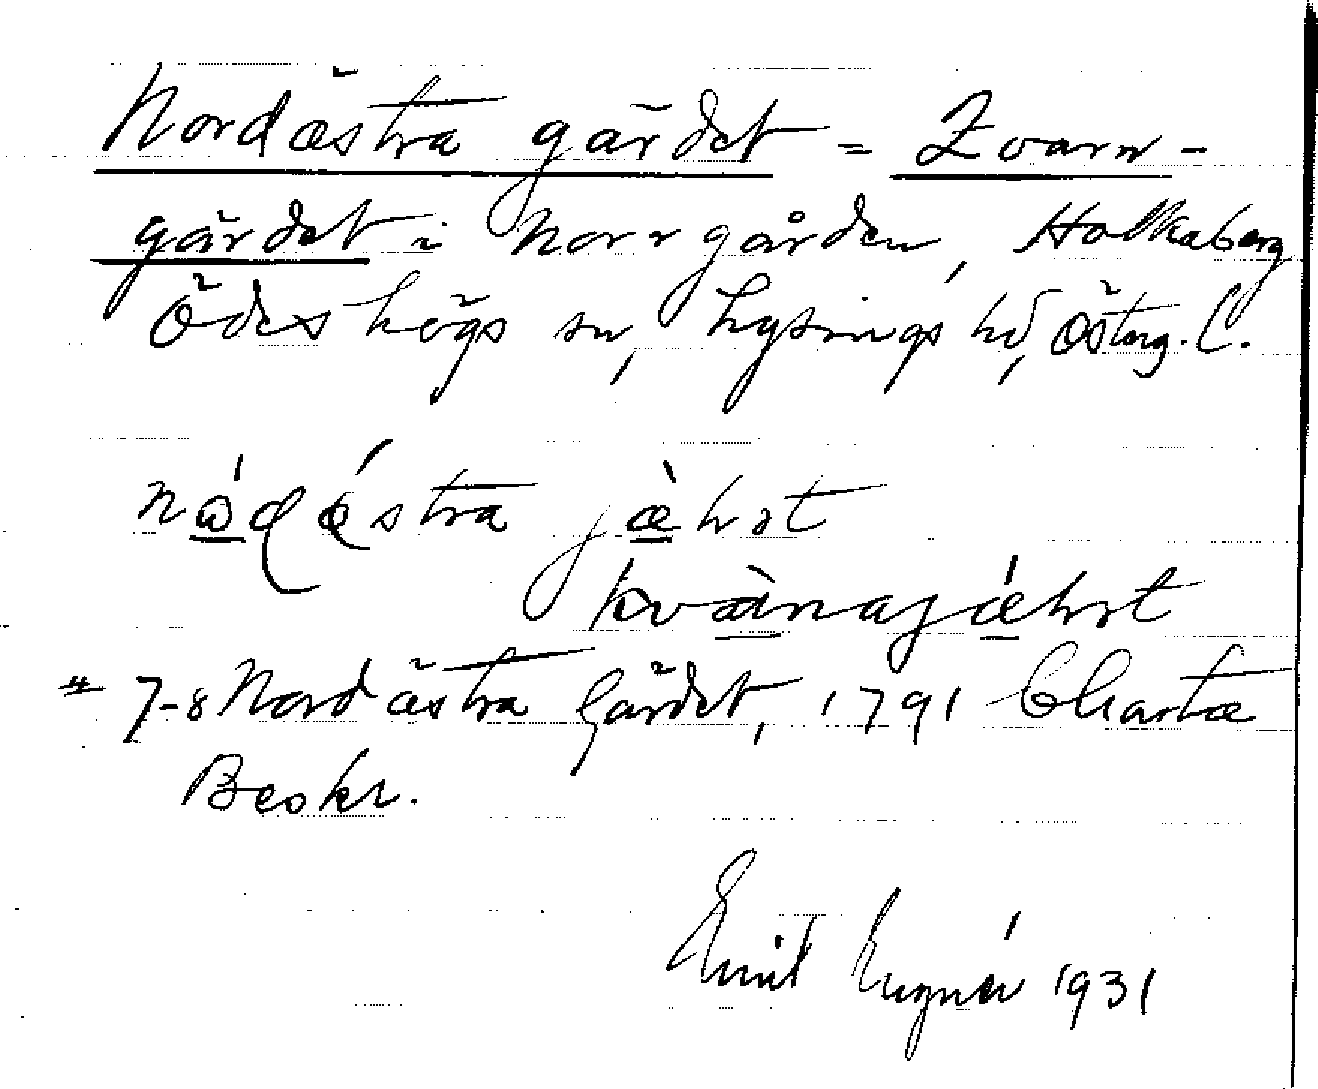 Nordästra gärdet = Qvarn-
gärdet i Norrgården, Holkaberg
Ödeshögs sn, Lysings hd, Österg. l.
nådästra jæhṛt
kvànajæhṛt
# 7-8 Nordästra Gärdet, 1791 Charta
Beskr.
Emil 1931